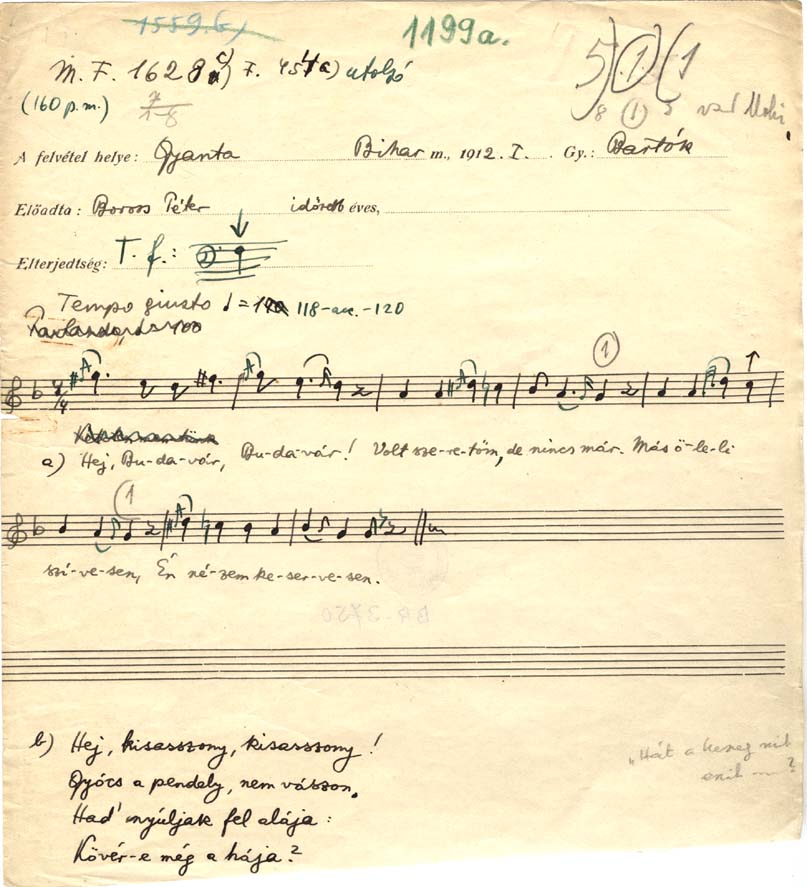 1559.b)
1199a.
M. F. 1628 c) F. 454 a) utolsó
5) (1.) (1
(160 p.m.)
8 (1) 5
A felvétel helye: Gyanta Bihar m., 1912. I. Gy.: Bartók
Előadta: Boross Péter időseb éves,
Elterjedtség: T. f.:
Tempo giusto = 118-acc.-120
Parlando, = 100
1
a) Hej, Bu-da-vár, Bu-da-vár! Volt sze-re-tőm, de nincs már. Más ö-le-li
1
szí-ve-sen, Én né-zem ke-ser-ve-sen.
BR-3720
b) Hej, kisasszony, kisasszony!
Gyócs a pendely, nem vászon,
Had' nyúljak fel alája:
Kövér-e még a hája?
"Hát a